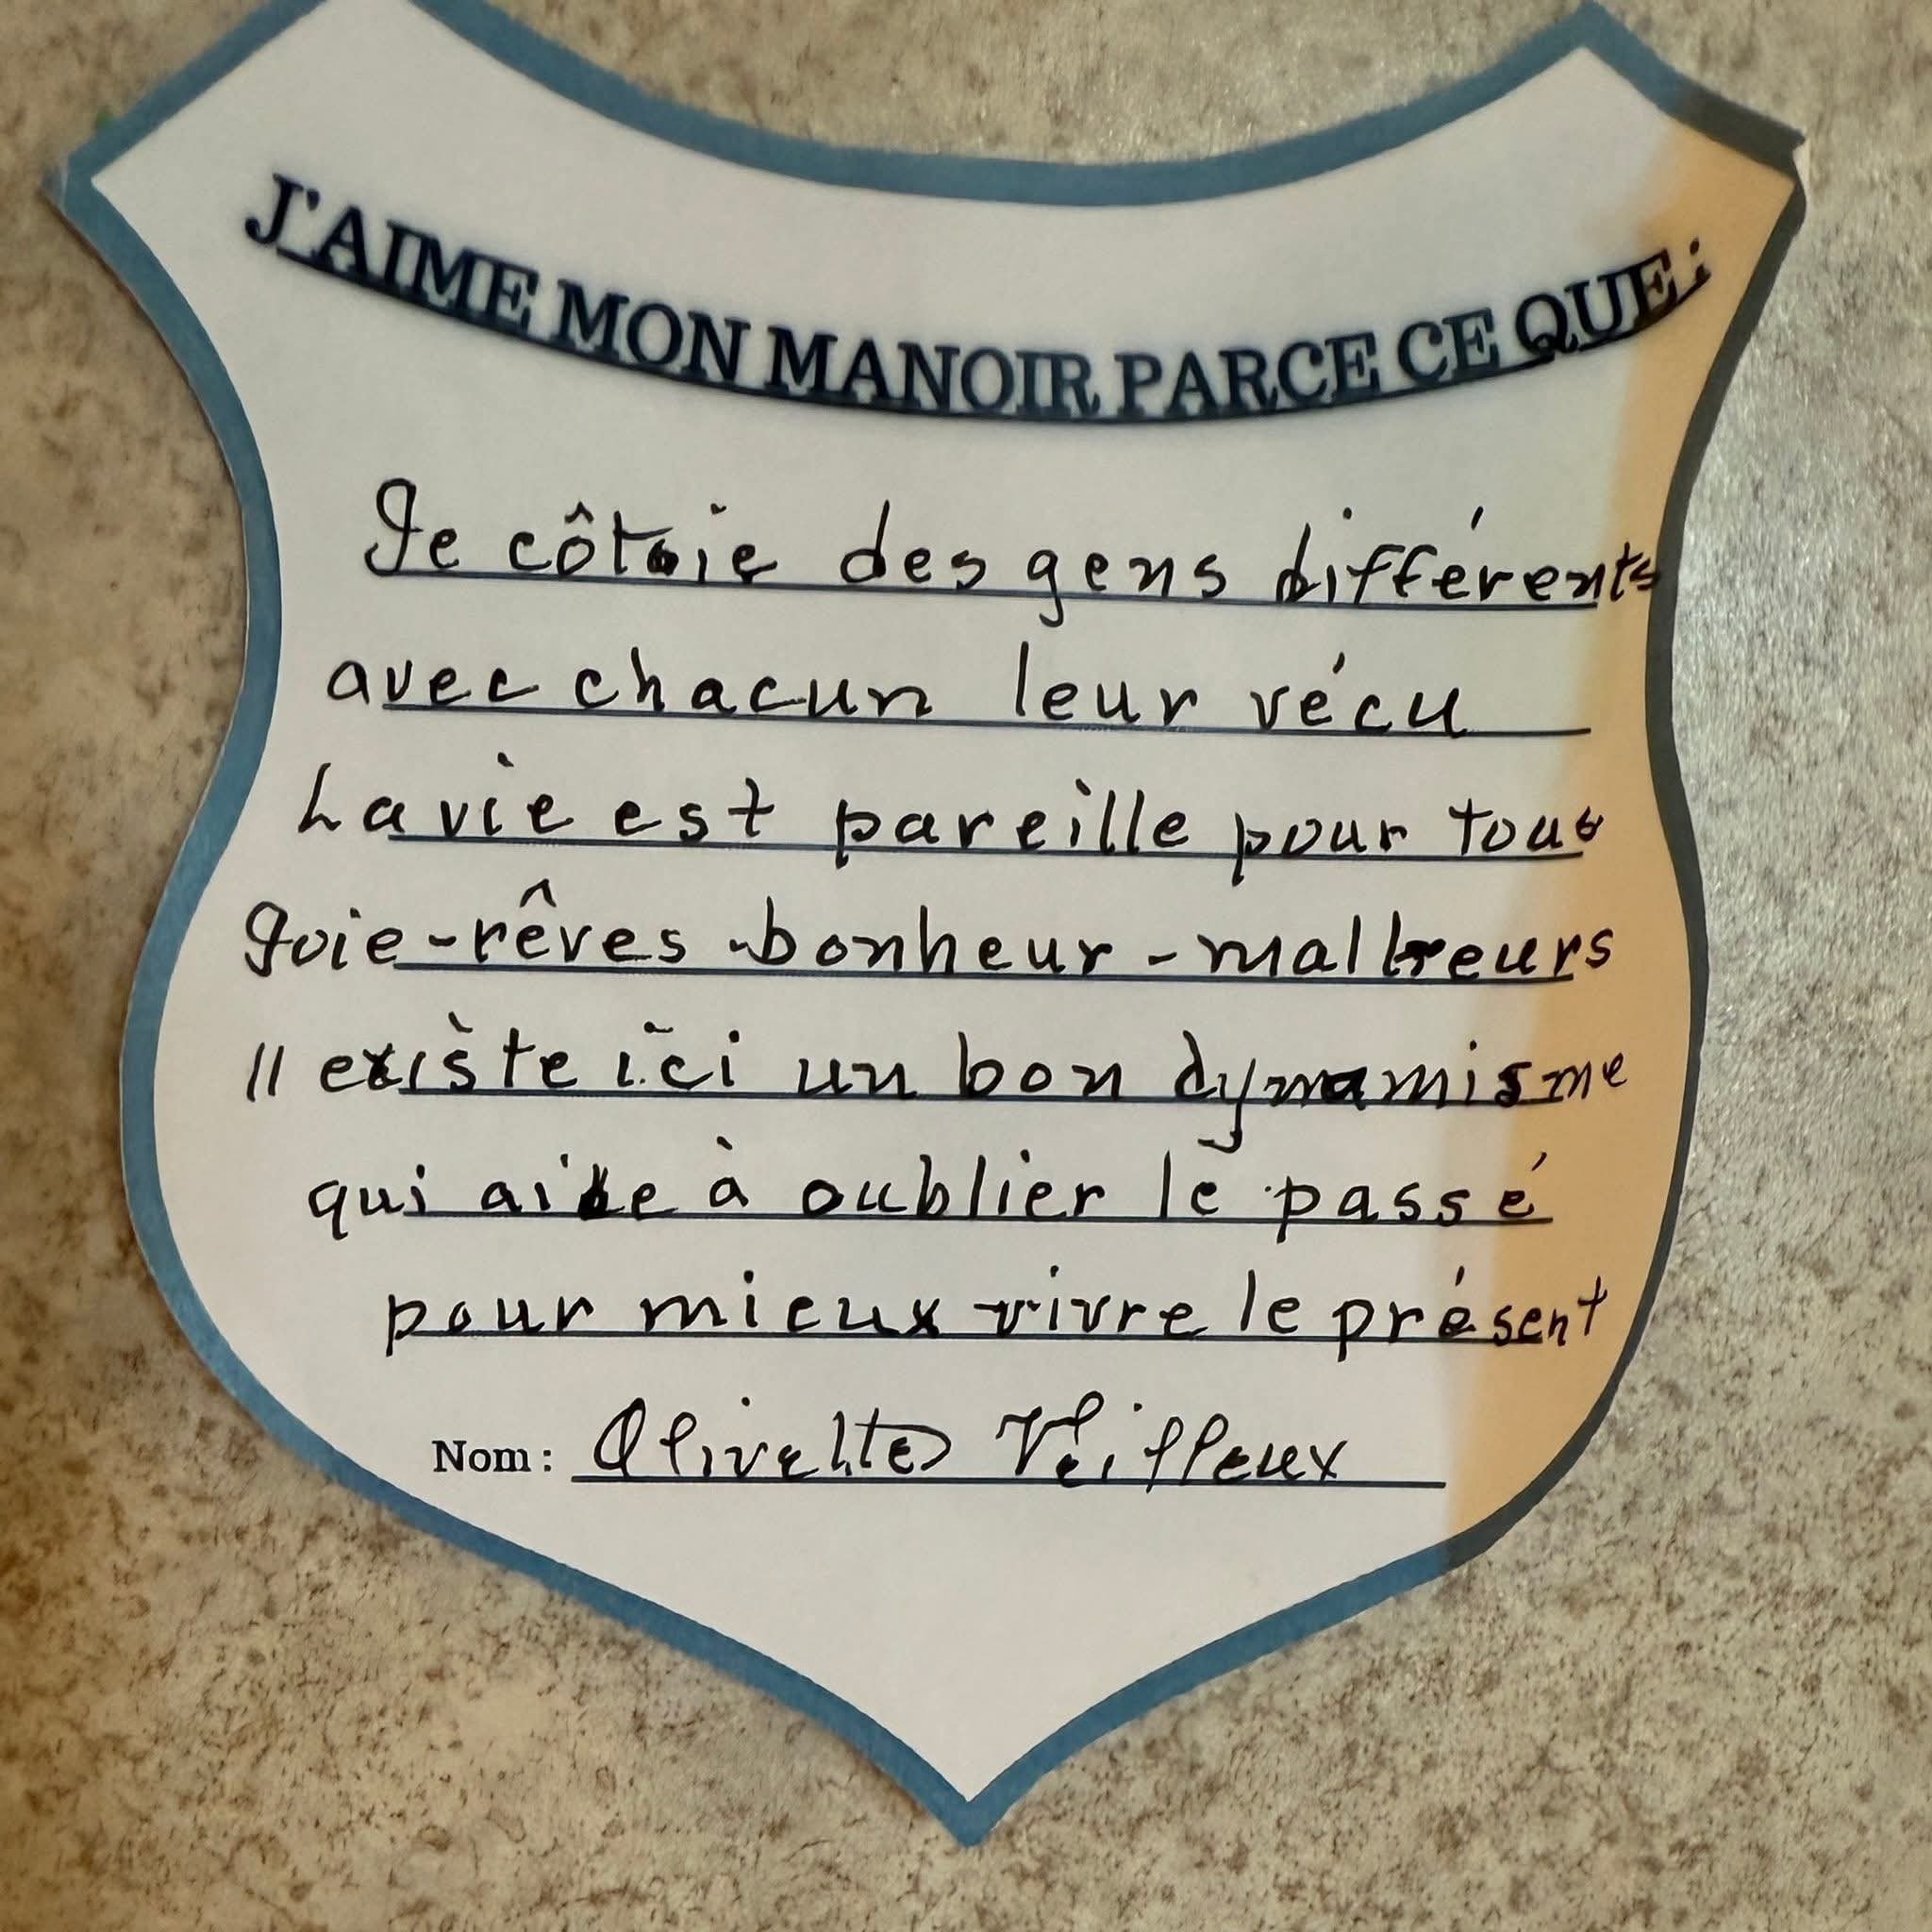 J'AIME MON MANOIR PARCE CE QUE :
Je côtoie des gens différents
avec chacun leur vécu
La vie est pareille pour tous
Joie - rêves - bonheur - malheurs
Il existe ici un bon dynamisme
qui aide à oublier le passé
pour mieux vivre le présent
Nom : Olivette Veilleux